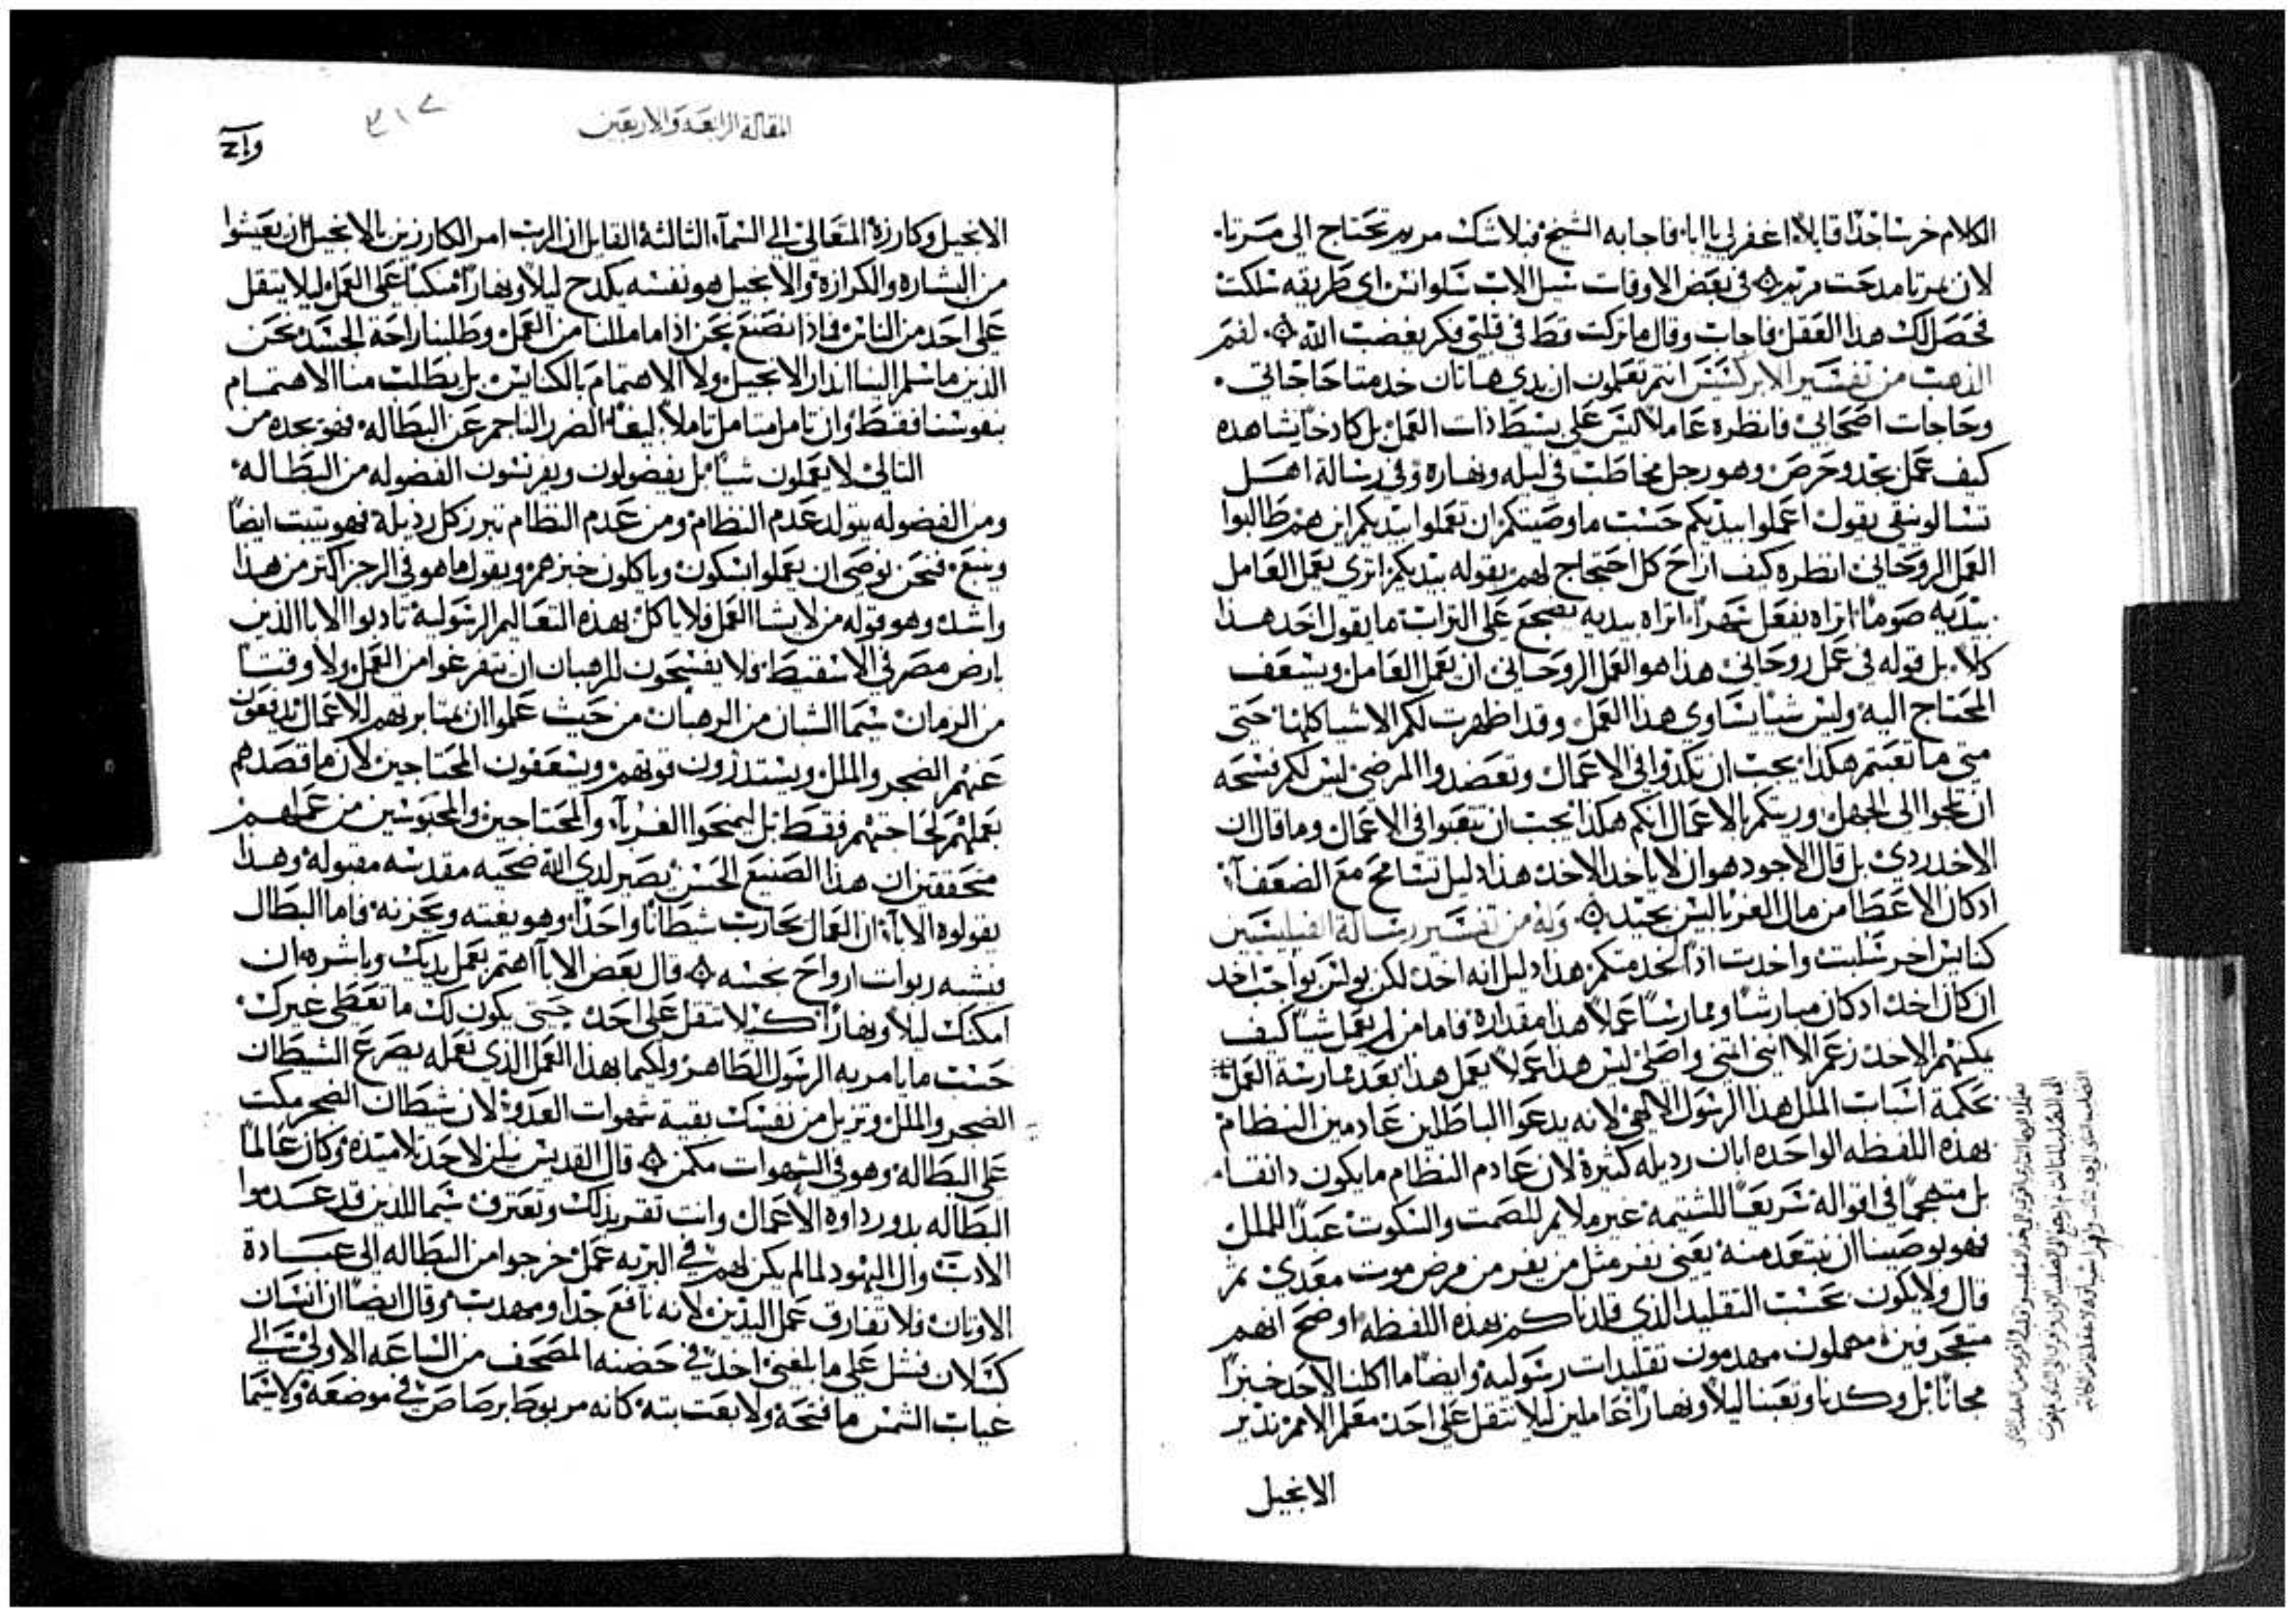 الكلام خرسا جدا قايلا اغفر لي يا ابا، فاجابه الشيخ فبلا شك مريم تحتاج الي مرتا،
لان بمرتا مدحت مريم ۞ في بعض الاوقات سيل الاب سلوانس اي طريقه سلكت
فحصل لك هذا العقل فاجاب وقال ما تركت قط في قلبي فكر يغضب الله ۞ لفم
الذهب من تفسير الابركسيس انتم تعلمون ان يدي هاتان خدمتا حاجاتي،
وحاجات اصحابي، فانظره عاملا ليس علي بسط ذات العمل بل كادحا، يشاهده
كيف عمل بجد وحرص وهو رجل مخاطب في ليله ونهاره، وفي رسالة اهل
تسالونيقي يقول اعملوا بيديكم حسب ما وصيتكم ان تعملوا بيديكم، اين هم طالبوا
العمل الروحاني، انظره كيف ازاح كل احتجاج لهم بقوله بيديكم، اتري يعمل العامل
بيديه صوما، اتراه يفعل سهرا، اتراه بيديه يضجع علي التراب، ما يقول احد هذا
كلا، بل قوله في عمل روحاني، هذا هو العمل الروحاني ان يعمل العامل ويسعف
المحتاج اليه، وليس شيا يساوي هذا العمل، وقد اظهرت لكم الاشيا كلها، حتي
متي ما تعبتم هكذا يجب ان تكدوا في الاعمال وتعضدوا المرضي، ليس لكم فسحه
ان تلجوا الي الجهل، وريتكم بالاعمال انكم هكذا يجب ان تتعبوا في الاعمال، وما قال ان
الاخذ ردي، بل قال الاجود هو ان لا ياخذ الاخذ، هذا دليل تسامح مع الضعفآ،
اذ كان الاعطا من مال الغربا ليس بجيد ۞ وله من تفسير رسالة الفيليبسيين
كنايس اخر سلبت واخذت اذا لخدمتكم، هذا دليل انه اخذ، لكن بولس بواجب اخذ
ان كان اخذ اذ كان مباشرا وممارسا عملا هذا مقداره، فاما من لم يعمل شيا كيف
يمكنهم الاخذ، زعم الا انني اتني واصلي ليس هذا عملا يعمل هذا بعد ممارسة العمل
بحكمة اسباب الملل هذا الرسول الالهي لانه يدعوا الباطلين عادمين النظام
بهذه اللفظه الواحده ابان رديله كثيرة، لان عادم النظام ما يكون دانقا،
بل متهجما في اقواله، سريعا للشتيمه، غير ملايم للصمت والسكوت، عبدا للملل
فهو يوصينا ان نبتعد منه، يعني نفر مثل من يفر من مرض موت معدي، ثم
قال ولا يكون بحسب التقليد الذي قلدناكم بهذه اللفظه اوضح انهم
متعجرفين، مهملون، مهدمون تقليدات رسوليه، وايضا ما اكلنا لاحد خبزا
مجانا بل وكدنا وتعبنا ليلا ونهارا عاملين ليلا نثقل علي احد، معلم الامم نذير
الانجيل
المقالة الرابعه والاربعين
٣١٧
الانجيل وكارزة المتعالي الي السمآ، الثالثة القايل ان الرب امر الكارزين بالانجيل ان يعيشوا
من البشاره والكرازة، والانجيل هو نفسه يكدح ليلا ونهارا منكبا علي العمل ليلا يثقل
علي احد من الناس، فماذا نصنع نحن اذا ما مللنا من العمل، وطلبنا راحة الجسد، نحن
الذين ما سلم الينا انذار الانجيل، ولا الاهتمام بالكنايس، بل يطلب منا الاهتمام
بنفوسنا فقط، وان تامل متامل تاملا بليغا، الضرر الناجم عن البطاله، فهو يجده من
التالي لا يعملون شيا بل يفضولون ويغرسون الفضوله من البطاله،
ومن الفضوله يتولد عدم النظام، ومن عدم النظام تبرز كل رديلة، فهو يثبت ايضا
ويتبع، فنحن نوصي ان يعملوا بسكون، وياكلون خبزهم، ويقول ما هو في الزجر اكثر من هذا
واشد، وهو قوله من لا يشا العمل فلا ياكل، بهذه التعاليم الرسولية تادبوا الابا الذين
بارض مصر في الاسقيط، فلا يفسحون للرهبان ان يتفرغوا من العمل، ولا وقتا
من الزمان، سيما الشبان من الرهبان، من حيث علموا ان بمثابرتهم الاعمال يدفعون
عنهم الضجر والملل، ويستدرون قوتهم، ويسعفون المحتاجين، لان ما قصدهم
بعملهم لحاجتهم فقط، بل ليمنحوا الغربآ، والمحتاجين، والمحبوسين من عملهم
متحققين ان هذا الصنيع الحسن يصير لدي الله ضحيه مقدسه مقبوله، وهذا
يقولوه الابآ، ان العمال يحارب شيطانا واحدا، وهو يغته ويحزنه، فاما البطال
فتسبيه ربوات ارواح نجسه ۞ قال بعض الابآ اهتم بعمل يديك وباشره، ان
امكنك ليلا ونهارا، كي لا تثقل علي احد، حتي يكون لك ما تعطي غيرك،
حسب ما يامر به الرسول الطاهر، ولكيما بهذا العمل الذي تعمله يصرع الشيطان
الضجر والملل، وتزيل من نفسك بقية شهوات العدو، لان شيطان الضجر مكب
علي البطاله، وهو في الشهوات مكمن ۞ قال القديس نيلن لاحد تلاميذه، وكان عالما
البطاله بدو رداوة الاعمال، وانت تقر بذلك وتعترف، سيما للذين قد عدموا
الادب، وال اليهود لما لم يكن لهم في البريه عمل خرجوا من البطاله الي عبادة
الاوثان، فلا تفارق عمل اليدين، لانه نافع جدا ومهذب، وقال ايضا ان انسان
كسلان فشل علي ما بلغني اخذ في حضنه المصحف من الساعه الاولي الي
غياب الشمس ما فتحه ولا بعت بته، كانه مربوط برصاص في موضعه، ولا سيما